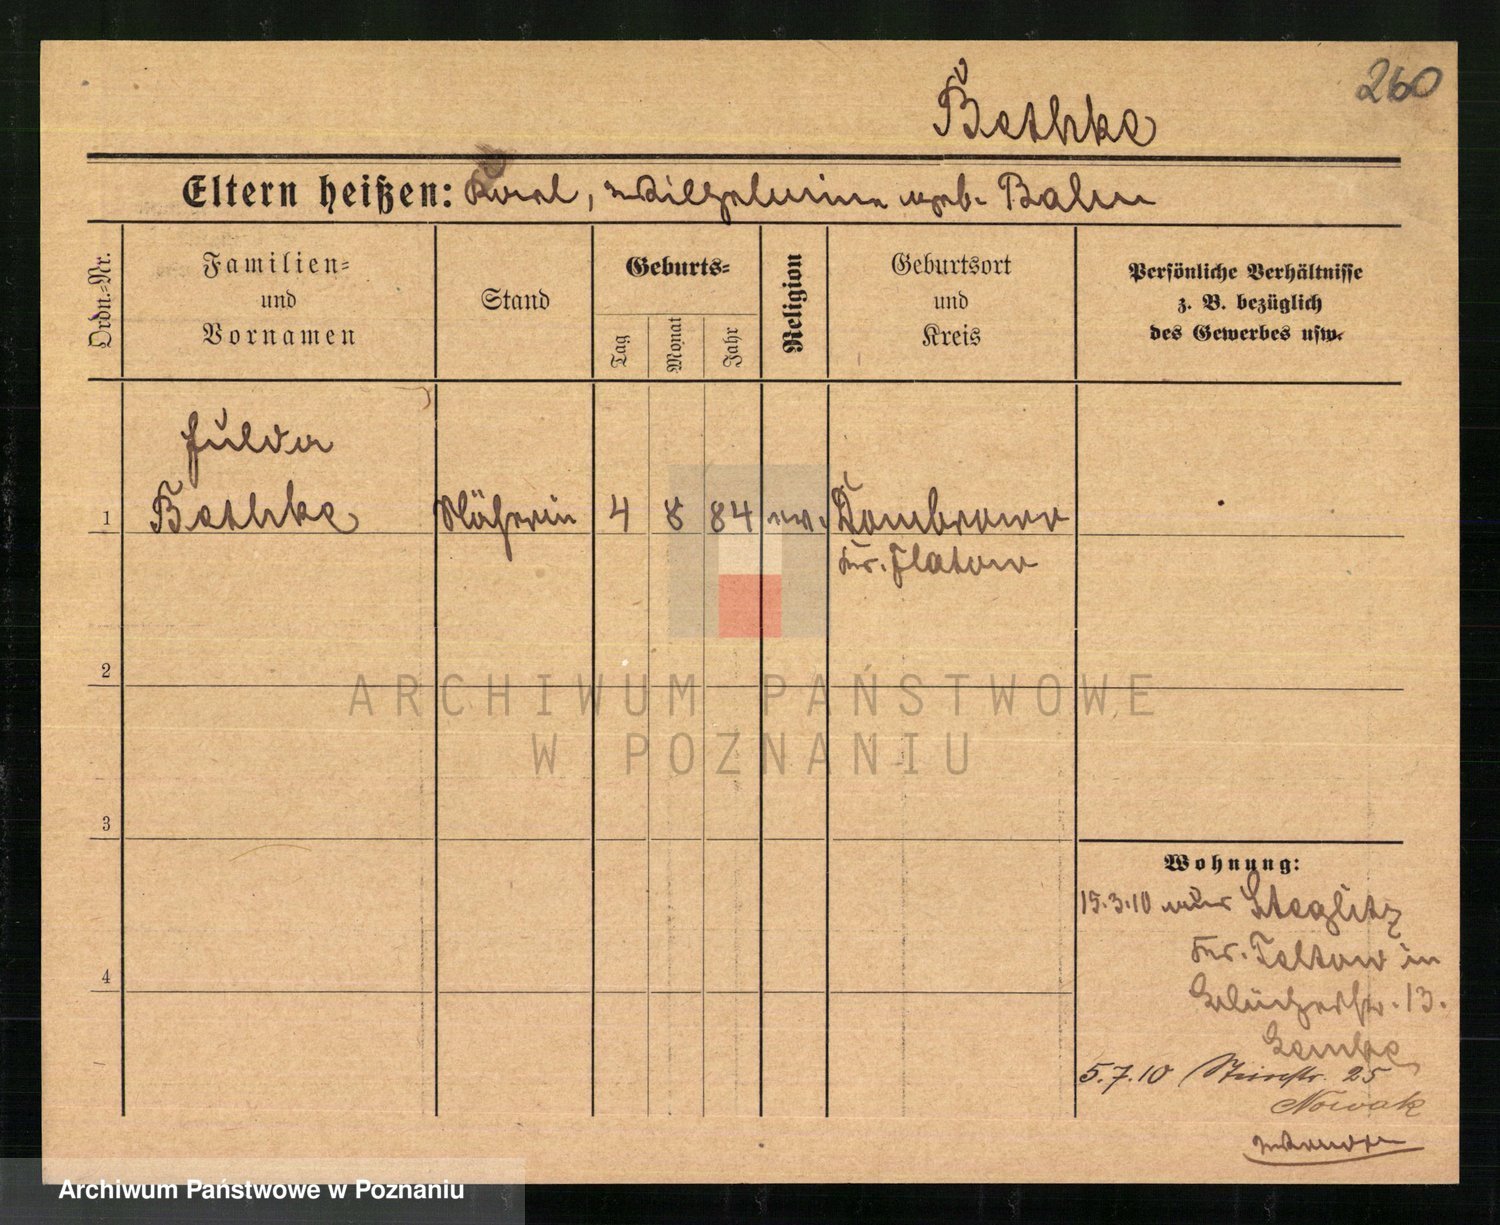 260
Bethke
Eltern heißen: Karl, Wilhelmine geb. Bahn
Ordn.-Nr.
Familien-
und
Vornamen
Stand
Geburts-
Tag
Monat
Jahr
Religion
Geburtsort
und
Kreis
Persönliche Verhältnisse
z. B. bezüglich
des Gewerbes usw.
Hulda
1 Bethke Näherin 4 8 84 ev. Dombrowo
Kr. Flatow
2
3
4
ARCHIWUM PAŃSTWOWE
W POZNANIU
Wohnung:
15.3.10 aus Steglitz
Kr. Teltow in
Blücherstr. 13.
5.7.10 25
Nowak
Archiwum Państwowe w Poznaniu